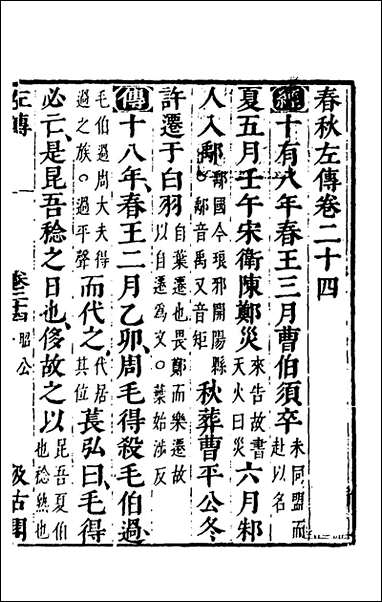 春秋左傳卷二十四
經十有八年春王三月曹伯須卒未同盟而赴以名
夏五月壬午宋衛陳鄭災來告故書天火曰災六月邾
人入鄅鄅國今琅邪開陽縣鄅音禹又音矩秋葬曹平公冬
許遷于白羽自葉遷也畏鄭而樂遷故以自遷為文○葉始涉反
傳十八年春王二月乙卯周毛得殺毛伯過
毛伯過周大夫得過之族○過平聲而代之代居其位萇弘曰毛得
必亡是昆吾稔之日也侈故之以昆吾夏伯也稔熟也
左傳 卷二十四 昭公 汲古閣